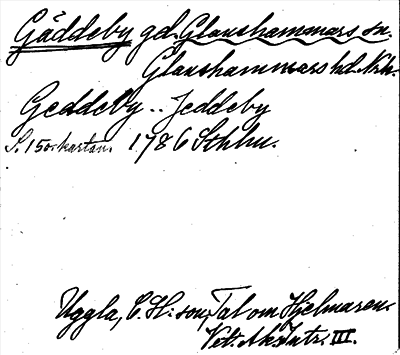 Gäddeby gd. Glanshammars sn.
Glanshammars hd. Nrk.
Geddeby .. Jeddeby
S. 150. kartan. 1786 Sthlm.
Uggla, C. H:son, Tal om Hjelmaren.
Vet. Ak. Intr. III.